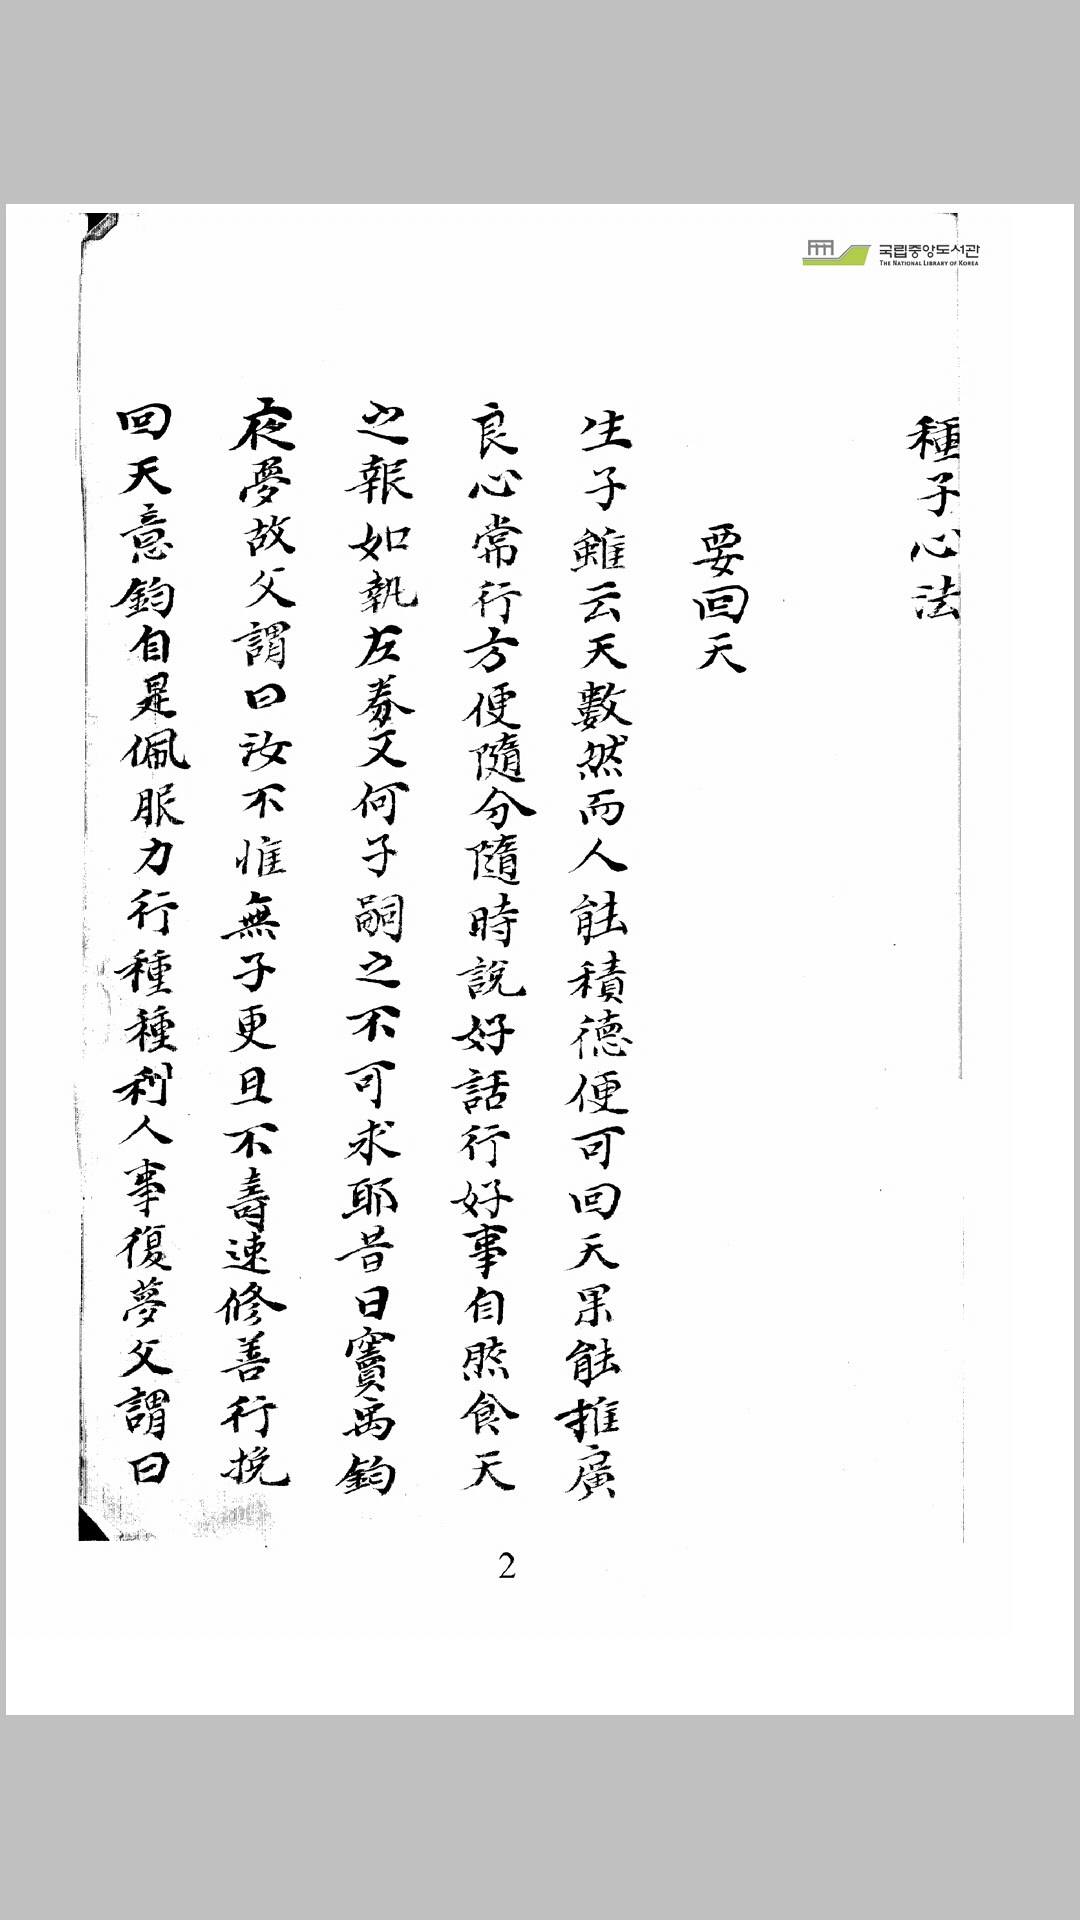 국립중앙도서관
THE NATIONAL LIBRARY OF KOREA
種子心法
要回天
生子雖云天數然而人能積德便可回天果能推廣
良心常行方便隨分隨時說好話行好事自然食天
之報如執左券又何子嗣之不可求耶昔日竇禹鈞
夜夢故父謂曰汝不惟無子更且不壽速修善行挽
回天意鈞自是佩服力行種種利人事復夢父謂曰
2